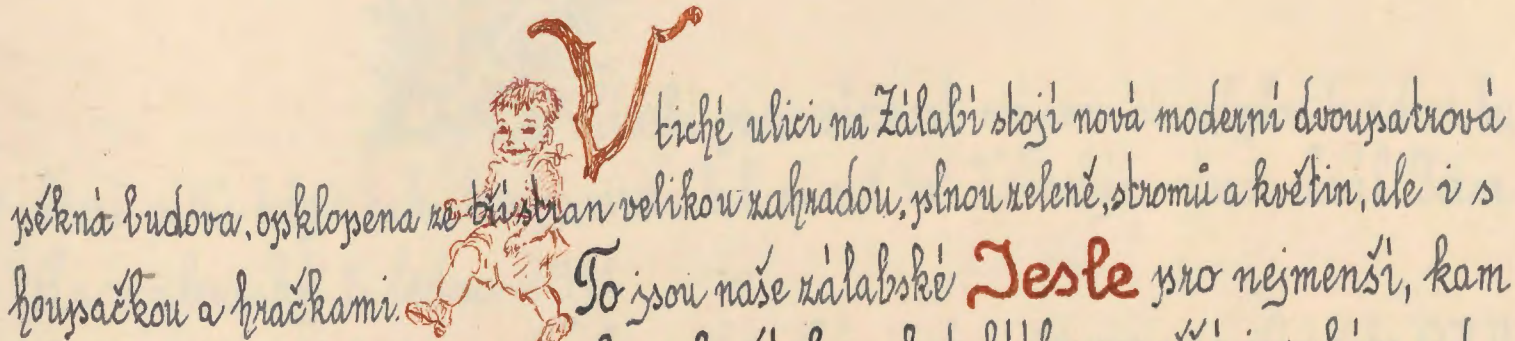 V tiché ulici na Zálabí stojí nová moderní dvoupatrová
pěkná budova, opklopena ze tří stran velikou zahradou, plnou zeleně, stromů a květin, ale i s
houpačkou a hračkami. To jsou naše zálabské Jesle pro nejmenší, kam